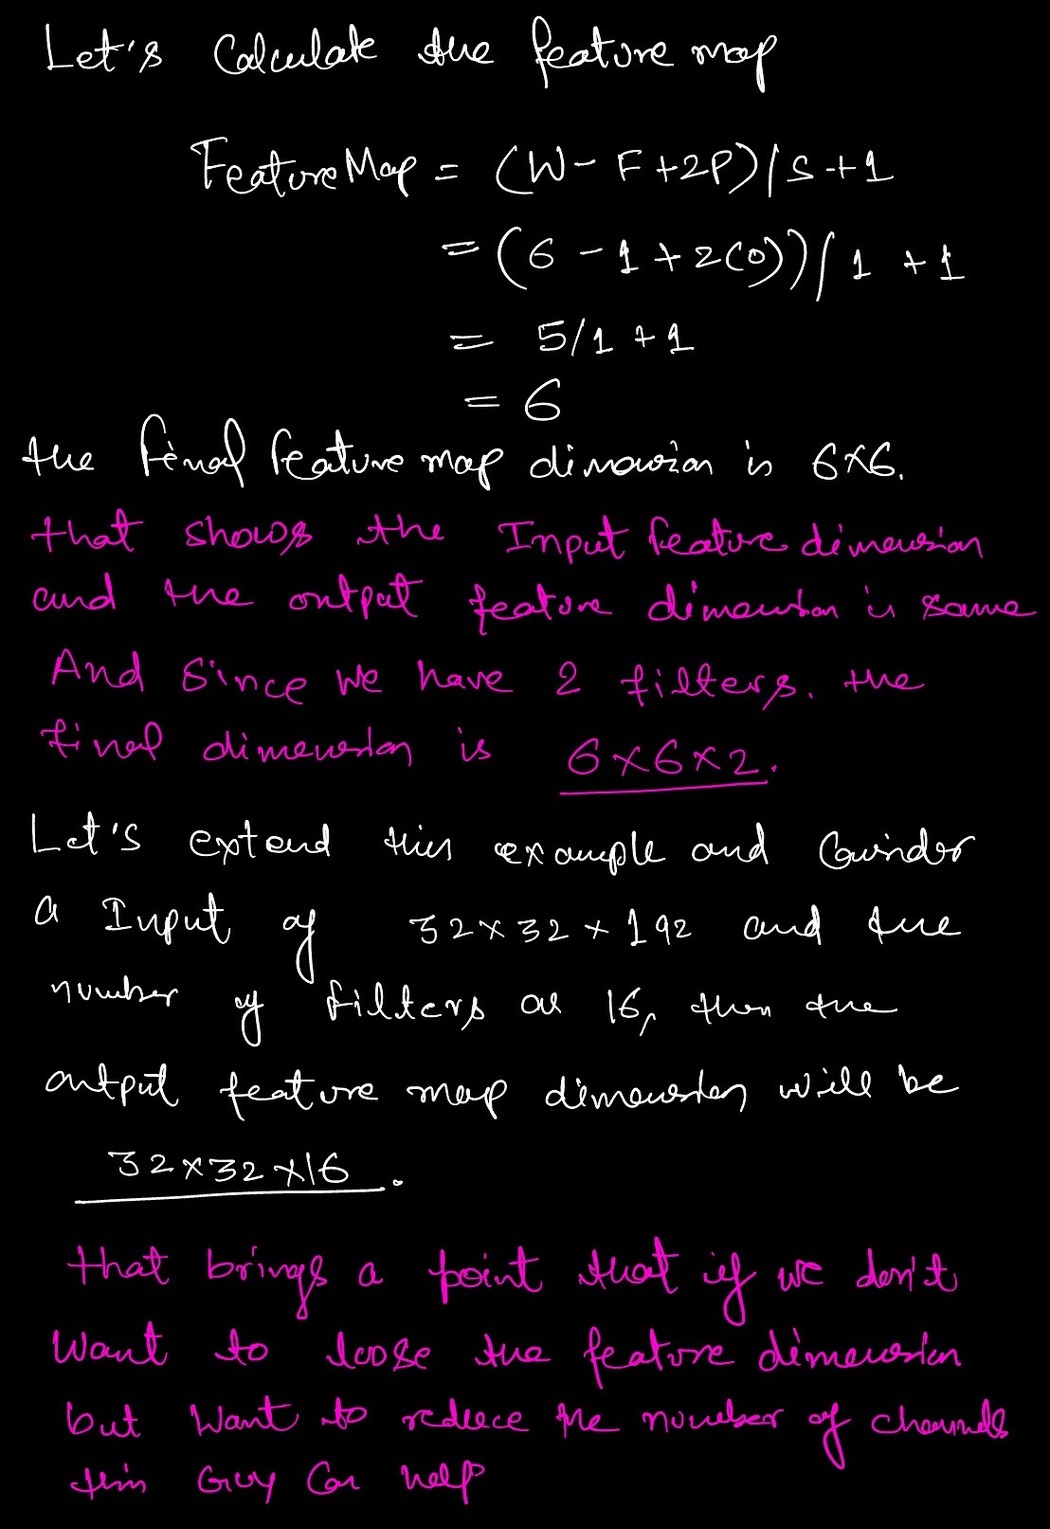 Let's Calculate the feature map
Feature Map = (W - F + 2P) / S + 1
= (6 - 1 + 2(0)) / 1 + 1
= 5/1 + 1
= 6
the final feature map dimension is 6x6.
that shows the Input feature dimension
and the output feature dimension is same
And Since we have 2 filters. the
final dimension is 6x6x2.
Let's extend this example and Consider
a Input of 32x32x192 and the
number of filters as 16, then the
output feature map dimension will be
32x32x16.
that brings a point that if we don't
want to loose the feature dimension
but want to reduce the number of channels
this Guy Can help